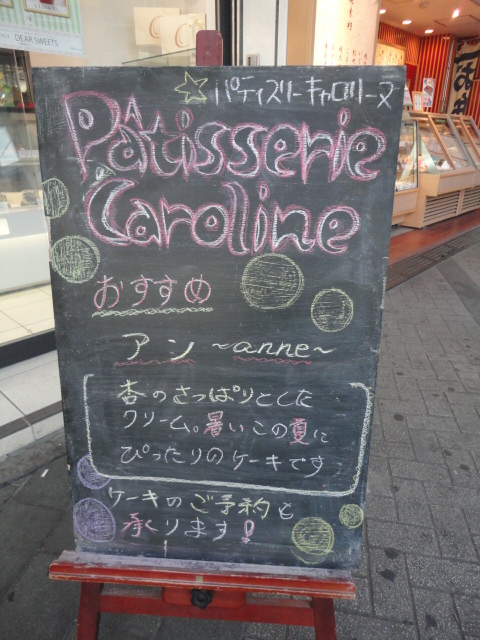 DEAR SWEETS
パティスリーキャロリーヌ
Pâtisserie
Caroline
おすすめ
アン ~anne~
杏のさっぱりとした
クリーム。暑いこの夏に
ぴったりのケーキです
ケーキのご予約も
承ります!